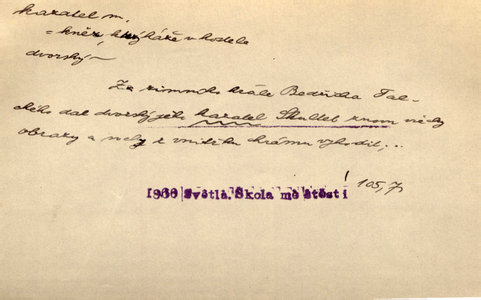 kazatel m.
= kněz kázáže v kostele
dvorský ~
Za zimního krále Bedřicha Fal-
ckého dal dvorský jeho kazatel Škultet znovu všecky
obrazy a sochy z vnitřku chrámu vyhodit,..
1966 Světlá. Škola mé štěstí 105,7